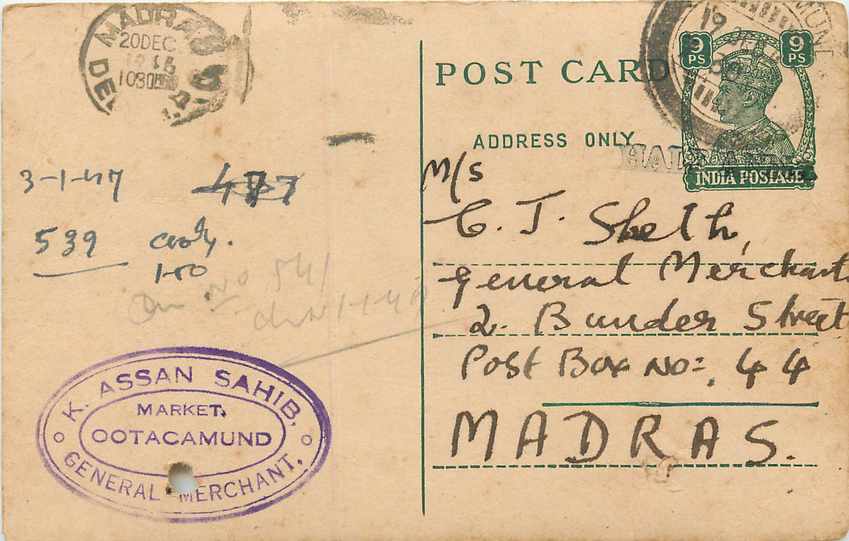 MADRAS
20 DEC
1030
POST CARD
ADDRESS ONLY
9 PS
9 PS
INDIA POSTAGE
19
3-1-47
477
539
100
No 541
M/s
C. J. Sheth,
General Merchant
2. Bunder Street
Post Box No:- 44
MADRAS.
K. ASSAN SAHIB,
MARKET,
OOTACAMUND
GENERAL MERCHANT.